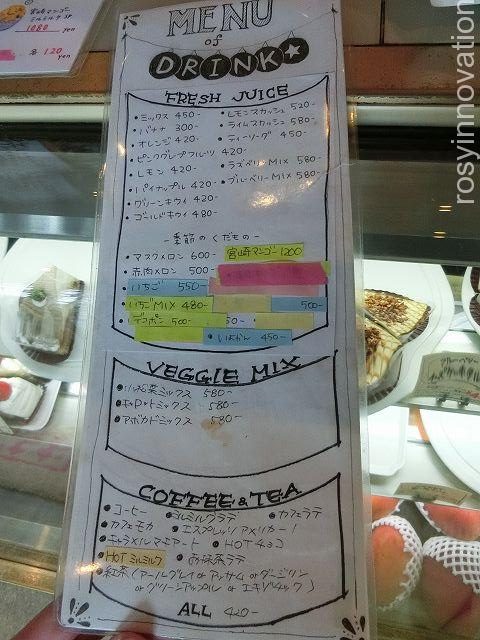 1080 yen
120 yen
MENU
of
DRINK★
FRESH JUICE
・ミックス 450-
・バナナ 300-
・オレンジ 420-
・ピンクグレプフルーツ 420-
・レモン 420-
・パイナップル 420-
・グリーンキウイ 420-
・ゴールドキウイ 480-
・レモンスカッシュ 520-
・ライムスカッシュ 580-
・ティーソーダ 450-
・ラズベリーMIX 580-
・ブルーベリーMIX 580-
-季節のくだもの-
・マスクメロン 600-
・赤肉メロン 500-
・いちご 550-
・いちごMIX 480-
・デコポン 500-
宮崎マンゴー1200
500-
50-
・いよかん 450-
VEGGIE MIX
・小松菜ミックス 580-
・キャロットミックス 580-
・アボカドミックス 580-
COFFEE & TEA
・コーヒー ・ミルミルクラテ ・カフェラテ
・カフェモカ ・エスプレッソアメリカーノ
・キャラメルマキアート ・HOTチョコ
・HOTミルミルク ・お抹茶ラテ
・紅茶(アールグレイ or アッサム or ダージリン
or グリーンアップル or エキゾチック)
ALL 420-
rosyinnovation